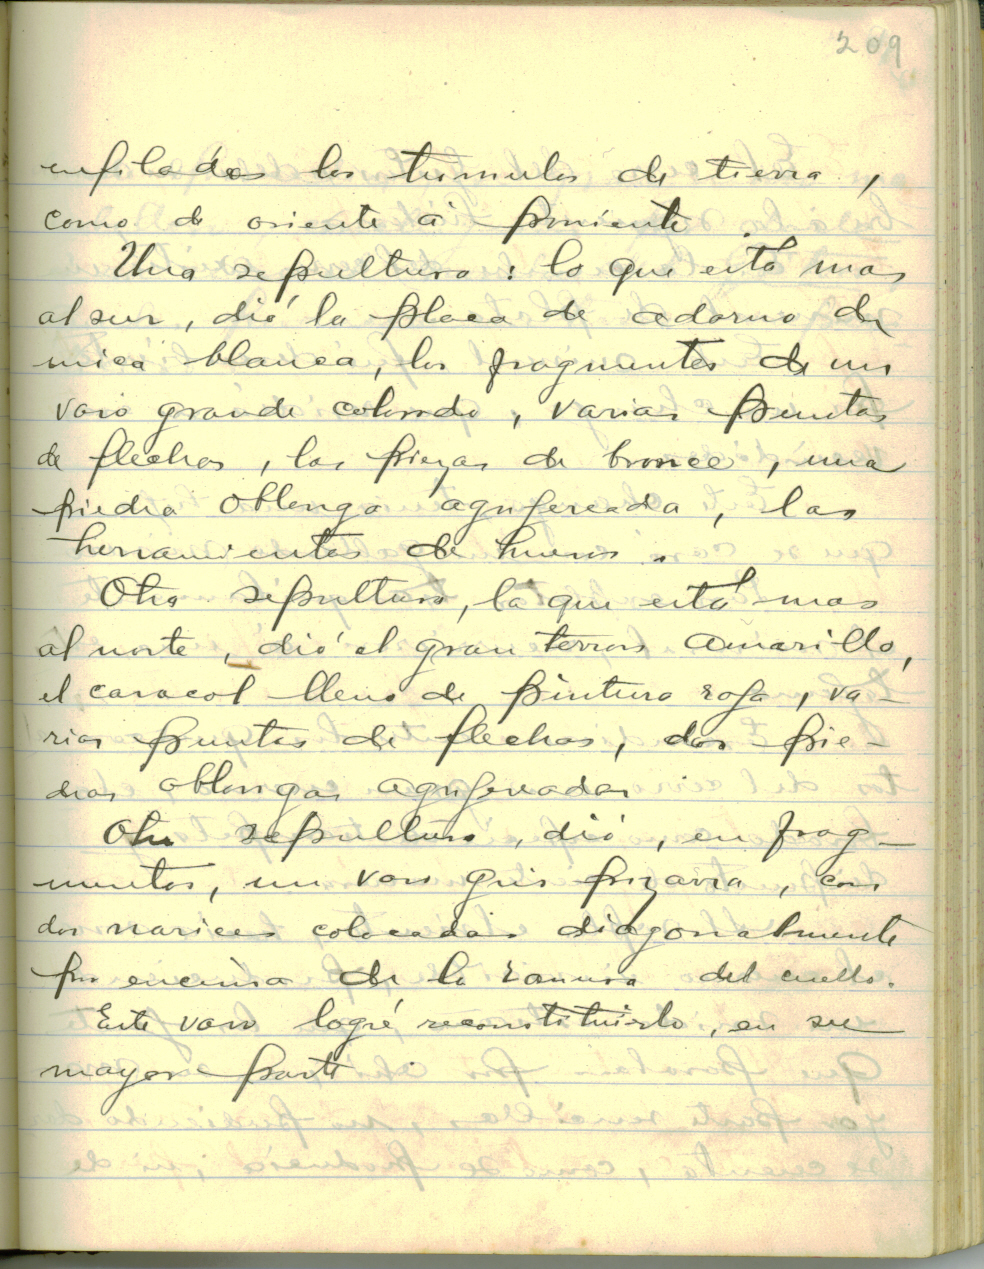 209
enfilados los túmulos de tierra,
como de oriente a poniente
Una sepultura: la que está mas
al sur, dió la placa de adorno de
mica blanca, los fragmentos de un
vaso grande colorado, varias puntas
de flechas, las piezas de bronce, una
piedra oblonga agujereada, las
herramientas de hueso.
Otra sepultura, la que está mas
al norte, dió el gran terron amarillo,
el caracol lleno de pintura roja, va-
rias puntas de flechas, dos pie-
dras oblongas agujereadas
Otra sepultura, dió, en frag-
mentos, un vaso gris pizarra, con
dos narices colocadas diagonalmente
por encima de la ranura del cuello.
Este vaso logré reconstituirlo, en su
mayor parte.